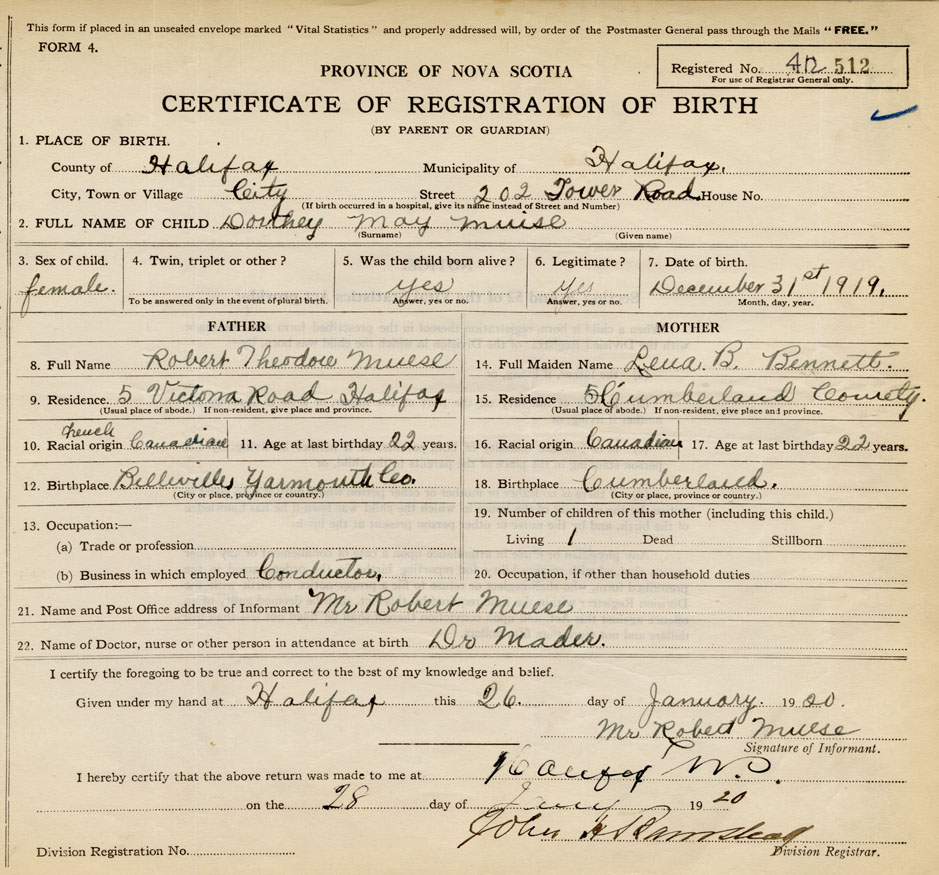 This form if placed in an unsealed envelope marked "Vital Statistics" and properly addressed will, by order of the Postmaster General pass through the Mails "FREE."
FORM 4.
Registered No. 42 512
For use of Registrar General only.
PROVINCE OF NOVA SCOTIA
CERTIFICATE OF REGISTRATION OF BIRTH
(BY PARENT OR GUARDIAN)
1. PLACE OF BIRTH.
County of Halifax Municipality of Halifax.
City, Town or Village City Street 202 Tower Road House No.
(If birth occurred in a hospital, give its name instead of Street and Number)
2. FULL NAME OF CHILD Dorthey May Muise
(Surname) (Given name)
3. Sex of child. 4. Twin, triplet or other? 5. Was the child born alive? 6. Legitimate? 7. Date of birth.
female. yes yes December 31st 1919.
To be answered only in the event of plural birth. Answer, yes or no. Answer, yes or no. Month, day, year.
FATHER MOTHER
8. Full Name Robert Theodow Muese 14. Full Maiden Name Lena. B. Bennett.
9. Residence. 5 Victoria Road Halifax 15. Residence Cumberland County.
(Usual place of abode.) If non-resident, give place and province. (Usual place of abode.) If non-resident, give place and province.
French
10. Racial origin Canadian 11. Age at last birthday 22 years. 16. Racial origin Canadian 17. Age at last birthday 22 years.
12. Birthplace Belliville Yarmouth Co. 18. Birthplace Cumberland.
(City or place, province or country.) (City or place, province or country.)
13. Occupation:— 19. Number of children of this mother (including this child.)
(a) Trade or profession Living 1 Dead Stillborn
(b) Business in which employed Conductor. 20. Occupation, if other than household duties
21. Name and Post Office address of Informant Mr Robert Muese
22. Name of Doctor, nurse or other person in attendance at birth Dr Mader.
I certify the foregoing to be true and correct to the best of my knowledge and belief.
Given under my hand at Halifax this 26. day of January. 1920.
Mr Robert Muese
Signature of Informant.
I hereby certify that the above return was made to me at Halifax N.S.
on the 28 day of Jany 1920
John H
Division Registration No. Division Registrar.